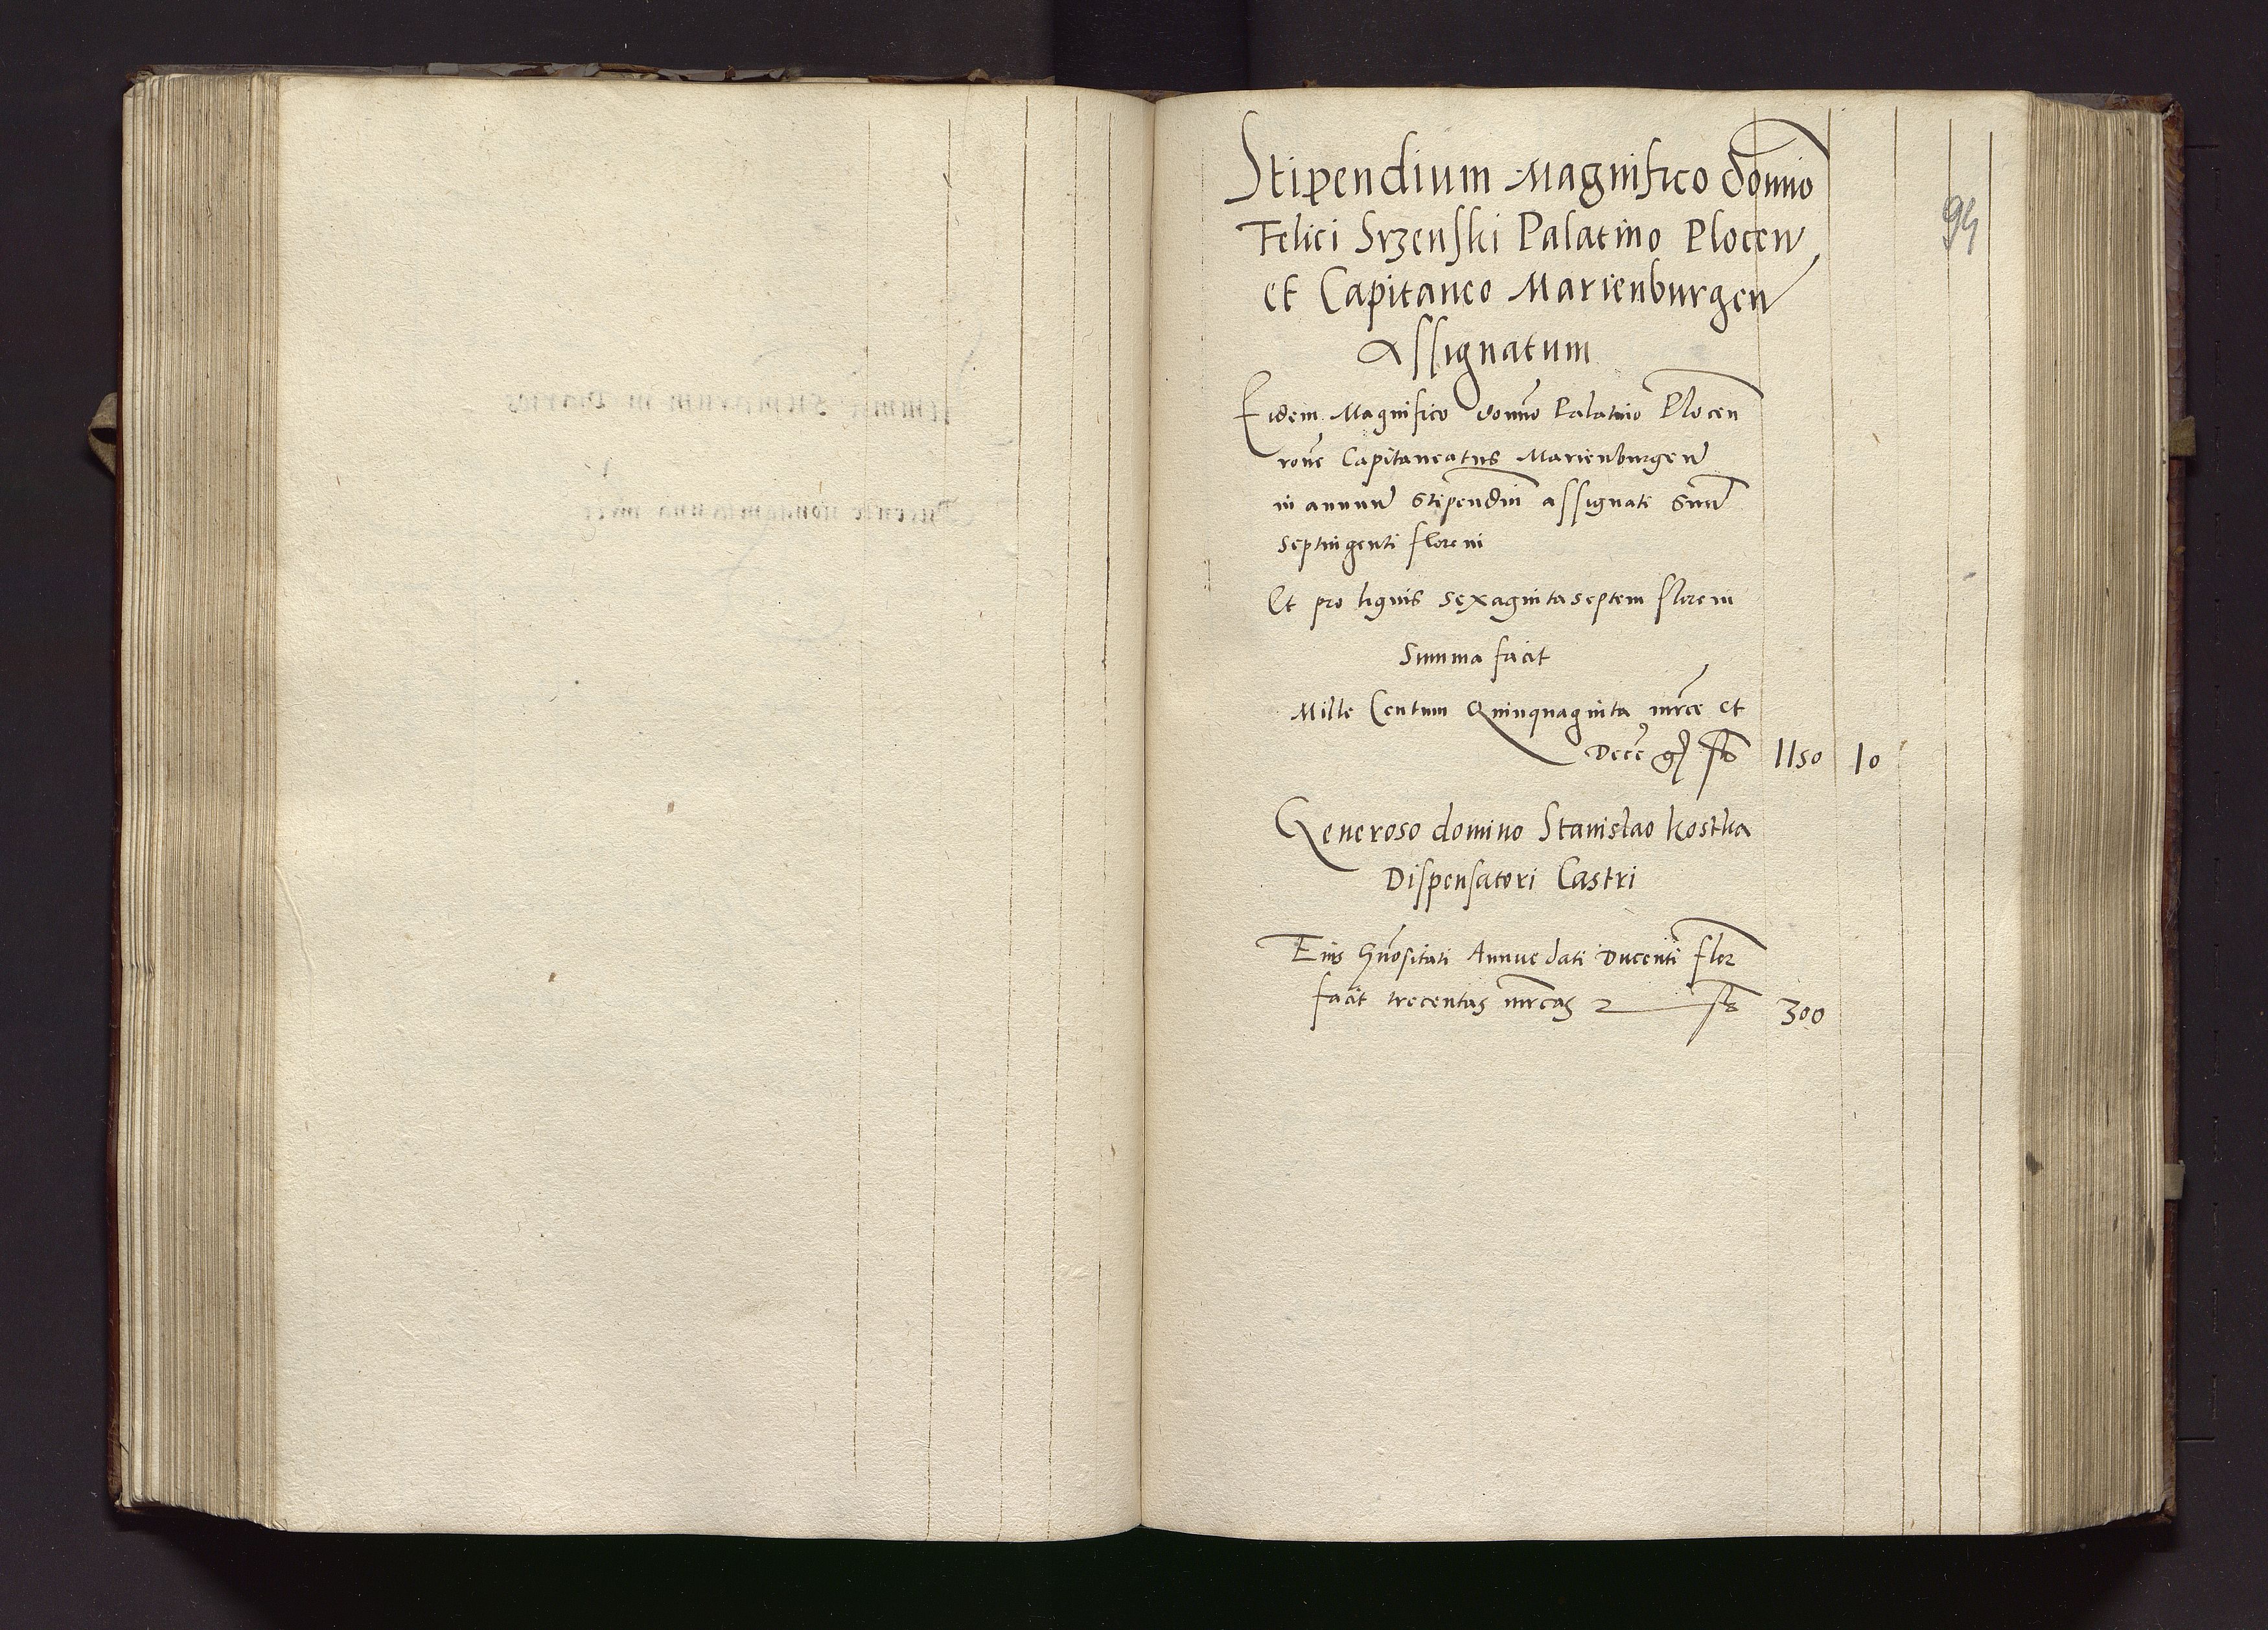 Stipendium Magnifico domino
Felici Srzenski Palatino Plocen
et Capitaneo Marienburgen
Assignatum
94
Eidem Magnifico domno Palatino Plocen
rone Capitaneatus Marienburgen
in annum stipendium assignati sunt
septingenti floreni
Et pro lignis sexagintaseptem floreni
Summa facit
Mille Centum Quinquaginta mrce et
Dece g 1150 10
Generoso domino Stanislao Kostka
Dispensatori Castri
Eius Gnositati Annue dati Ducenti flor
facit trecentas mrcas 300